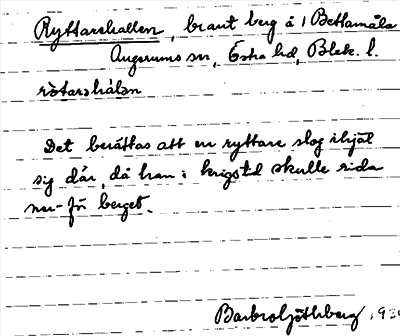 Ryttarehallen, brant berg å 1 Betlamåla
Augerums sn, Östra hd, Blek. l.
ròtarshálan
Det berättas att en ryttare slog ihjäl
sig där, då han i krigstid skulle rida
ner-för berget.
Barbro Götlberg, 193